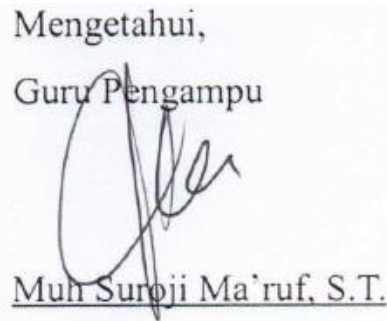 Mengetahui,
Guru Pengampu
Muh Suroji Ma'ruf, S.T.